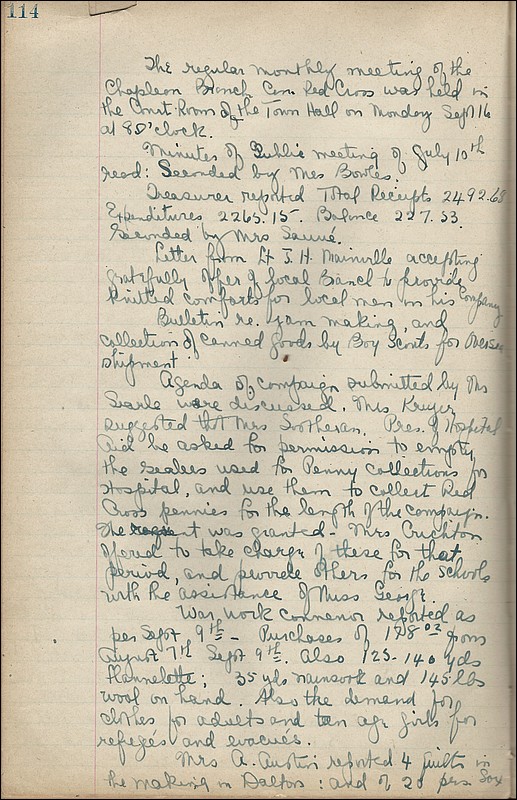 114
The regular monthly meeting of the
Chapleau Branch Can. Red Cross was held in
the Court Room of the Town Hall on Monday Sept 16
at 8 O'clock.
Minutes of Public meeting of July 10th
read: Seconded by Mrs Bowles.
Treasurer reported Total Receipts 2492.68
Expenditures 2265.15. Balance 227.53.
Seconded by Mrs Sauvé.
Letter from Lt J. H. Mainville accepting
gratefully offer of local Branch to provide
knitted comforts for local men in his Company
Bulletin re. jam making, and
collection of canned goods by Boy Scouts for
shipment
Agenda of campaign submitted by
Searle were discussed. Mrs. Kruger
suggested that Mrs Sootheran. Pres. of Hospital
Aid be asked for permission to empty
the sealers used for Penny collections for
Hospital, and use them to collect Red
Cross pennies for the length of the campaign.
The was granted - Mrs Crichton
offered to take charge of these for that
period, and provide others for the schools
with the assistance of Miss George.
War work convenor reported as
per Sept 9th - Purchases of from
August 7th Sept 9th. Also 125-140 yds
flannelette; 35 yds nainsook and 145 lbs
wool on hand. Also the demand for
clothes for adults and ten age girls for
refegés and evacués.
Mrs A. Austin reported 4 quilts in
the making in Dalton: and of 20 prs. Sox